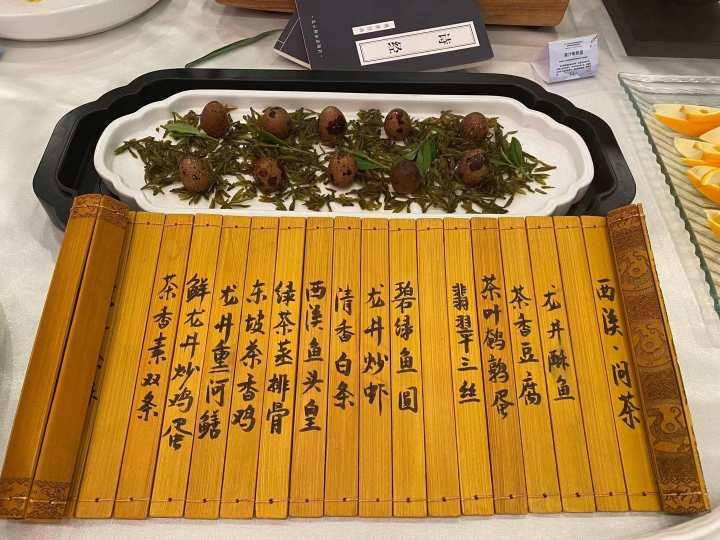 诗经
西溪·问茶
龙井酥鱼
茶香豆腐
茶叶鹌鹑蛋
翡翠三丝
碧绿鱼圆
龙井炒虾
清香白条
西溪鱼头皇
绿茶蒸排骨
东坡茶香鸡
龙井熏河鳝
鲜龙井炒鸡蛋
茶香素双条